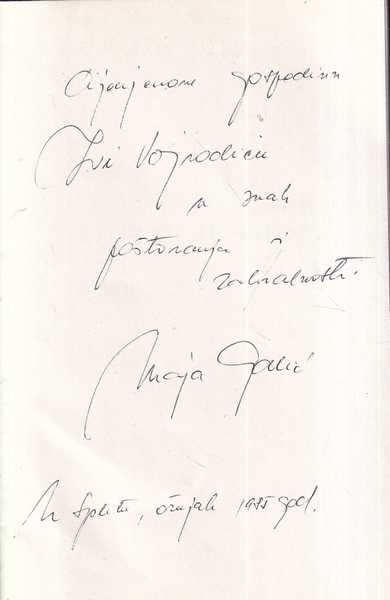 Cijenjenom gospodinu
Ivi Vojnodiću
u znak
poštovanja i
zahvalnosti.
Maja Galić
U Splitu, ožujak 1985 god.